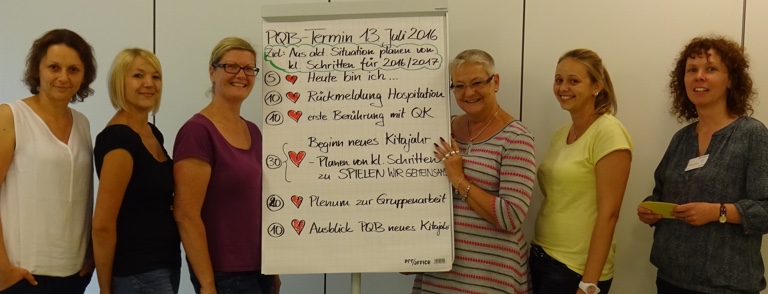 PQB-Termin 13 Juli 2016
Ziel: Aus akt Situation planen von
kl. Schritten für 2016/2017
5 Heute bin ich...
10 Rückmeldung Hospitation
10 erste Berührung mit QK
Beginn neues Kitajahr
30 - Planen von kl. Schritten
zu SPIELEN WIR GEMEINSAM
Plenum zur Gruppenarbeit
10 Ausblick PQB neues Kitajahr